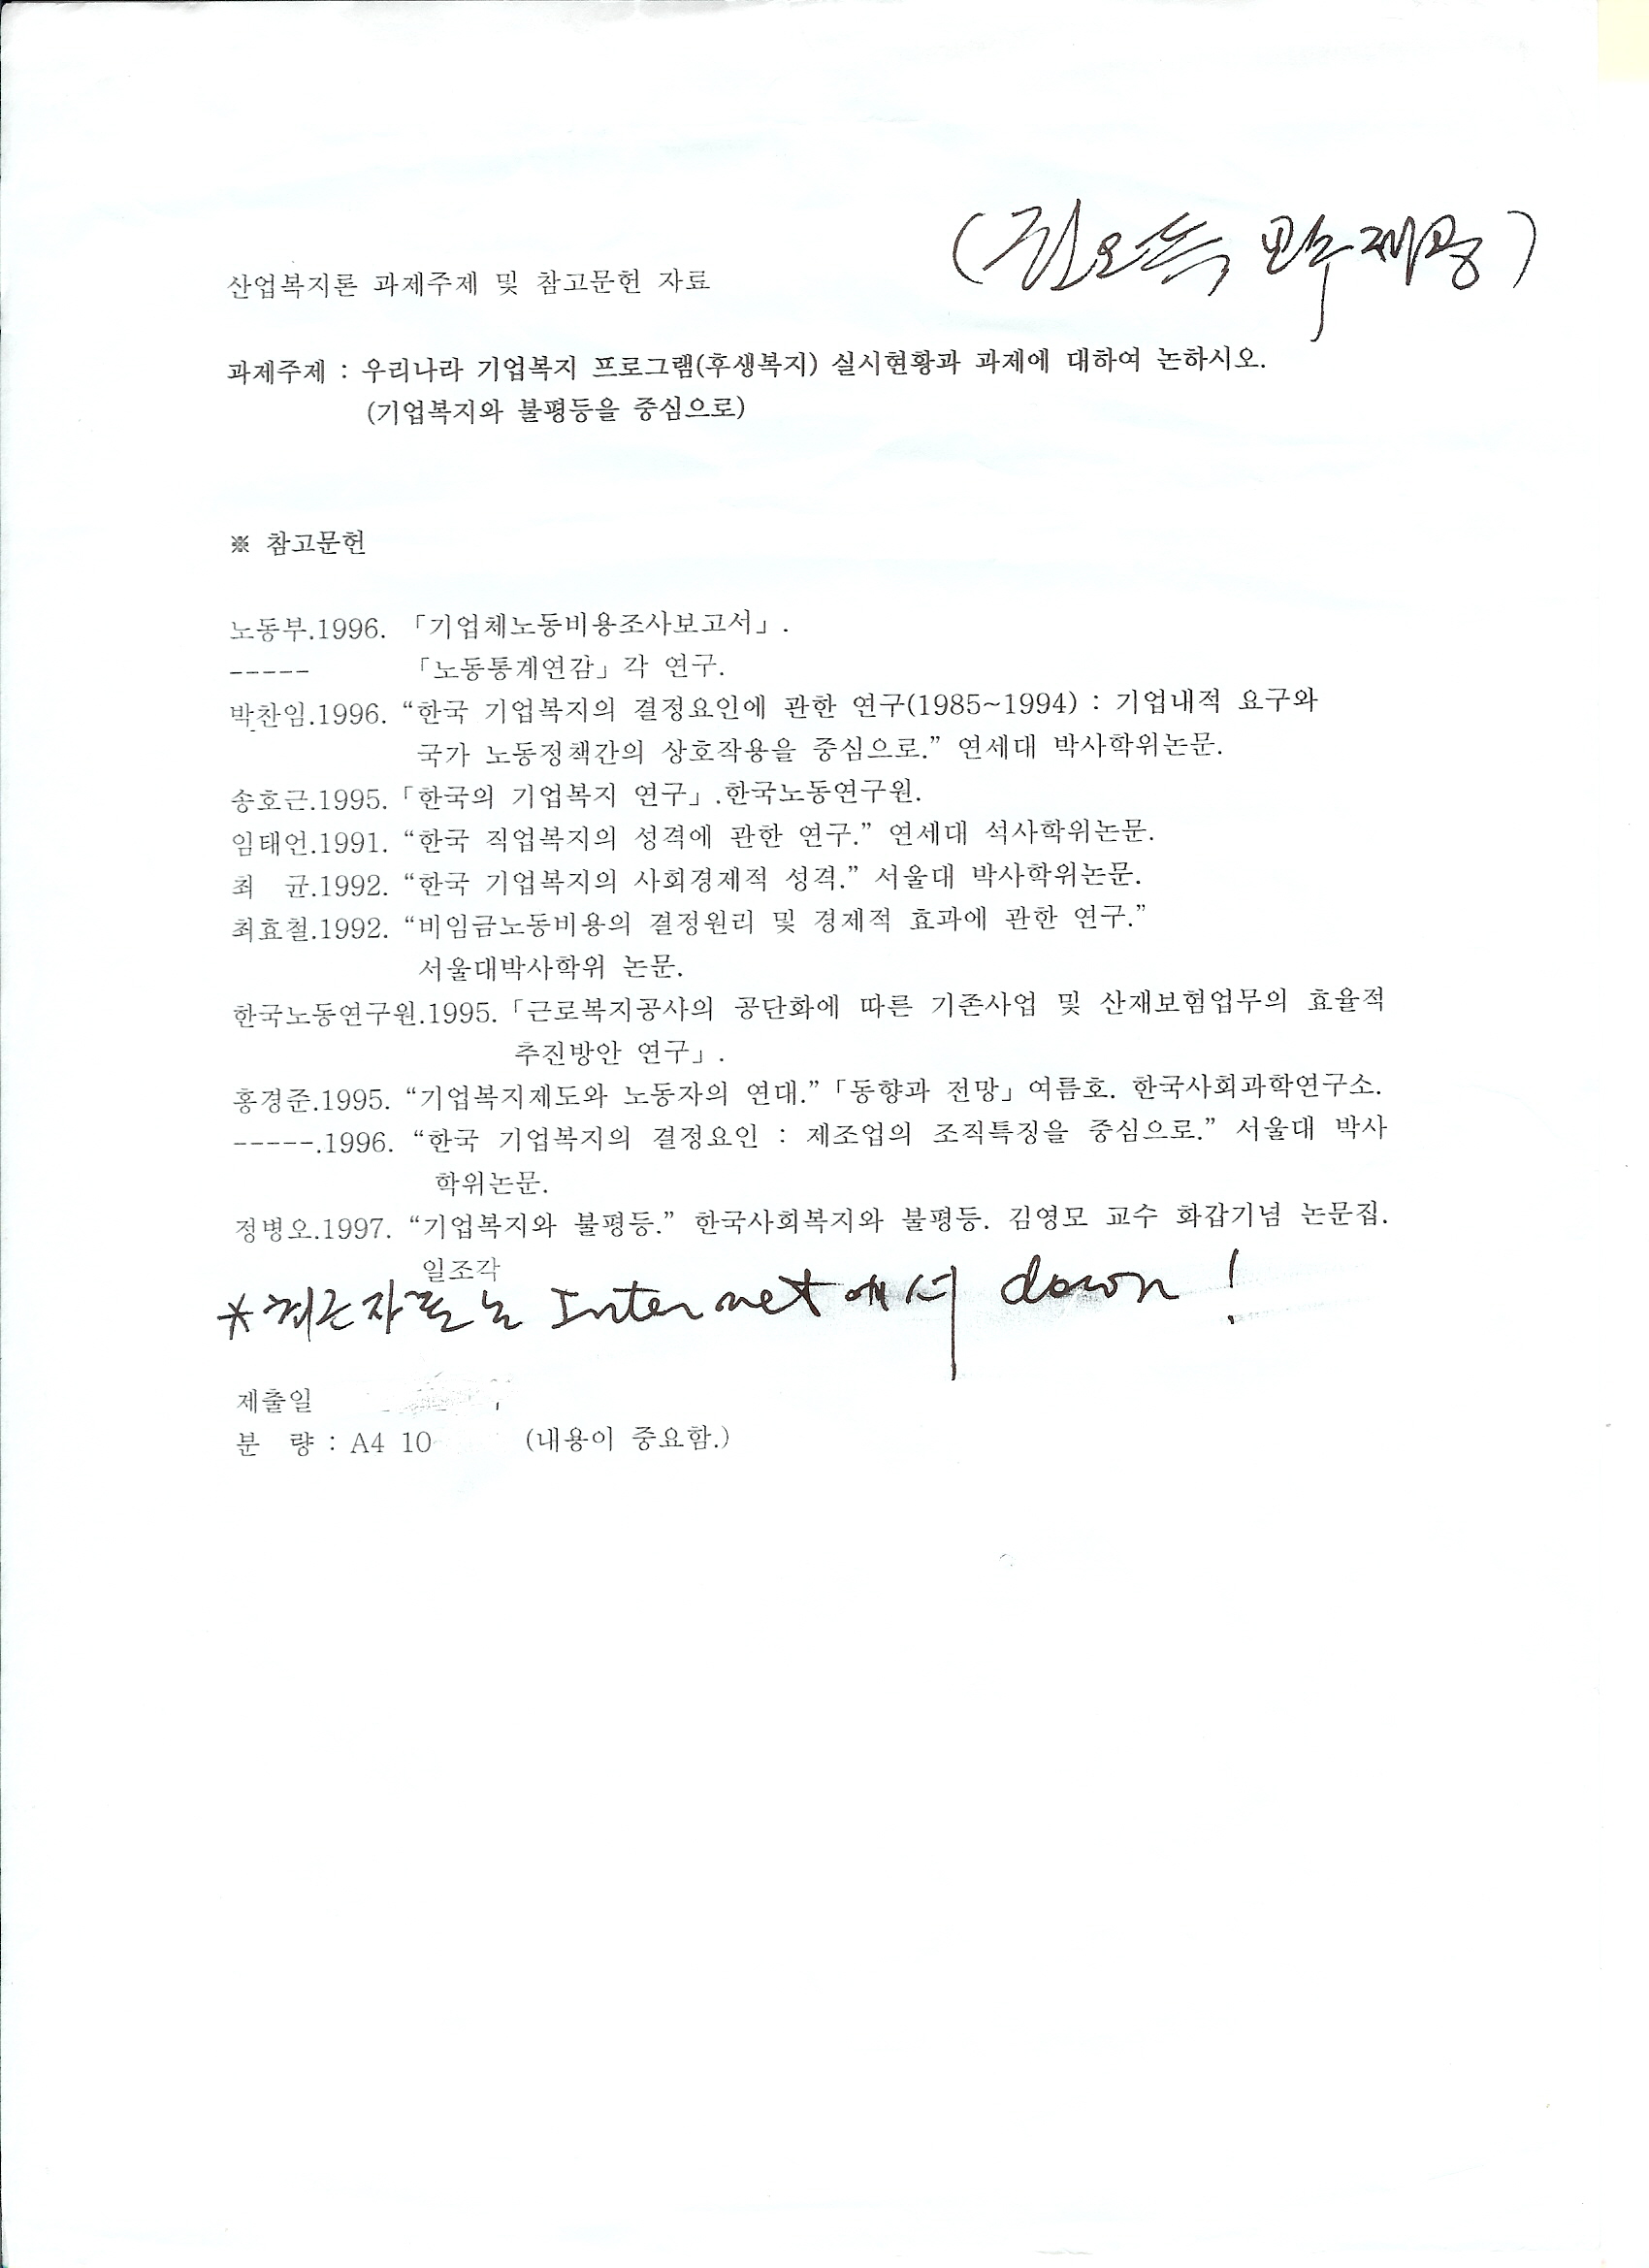 (권오득 교수 제공)
산업복지론 과제주제 및 참고문헌 자료
과제주제 : 우리나라 기업복지 프로그램(후생복지) 실시현황과 과제에 대하여 논하시오.
(기업복지와 불평등을 중심으로)
※ 참고문헌
노동부.1996. 「기업체노동비용조사보고서」.
----- 「노동통계연감」각 연구.
박찬임.1996. “한국 기업복지의 결정요인에 관한 연구(1985~1994) : 기업내적 요구와
국가 노동정책간의 상호작용을 중심으로.” 연세대 박사학위논문.
송호근.1995.「한국의 기업복지 연구」.한국노동연구원.
임태언.1991. “한국 직업복지의 성격에 관한 연구.” 연세대 석사학위논문.
최 균.1992. “한국 기업복지의 사회경제적 성격.” 서울대 박사학위논문.
최효철.1992. “비임금노동비용의 결정원리 및 경제적 효과에 관한 연구.”
서울대박사학위 논문.
한국노동연구원.1995.「근로복지공사의 공단화에 따른 기존사업 및 산재보험업무의 효율적
추진방안 연구」.
홍경준.1995. “기업복지제도와 노동자의 연대.”「동향과 전망」여름호. 한국사회과학연구소.
-----.1996. “한국 기업복지의 결정요인 : 제조업의 조직특징을 중심으로.” 서울대 박사
학위논문.
정병오.1997. “기업복지와 불평등.” 한국사회복지와 불평등. 김영모 교수 화갑기념 논문집.
일조각
*최근자료는 Internet에서 down !
제출일
분 량 : A4 10 (내용이 중요함.)